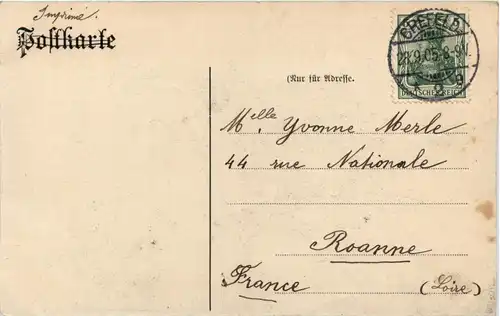 Imprimé.
Postkarte
CREFELD
28.9.05.8-9V.
DEUTSCHES REICH
(Nur für Adresse.
Melle. Yvonne Merle
44 rue Nationale
Roanne
France (Loire)